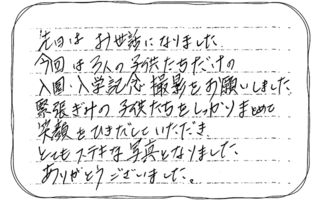 先日は お世話になりました
今回は 3人の子供たちだけの
入園・入学記念 撮影をお願いしました。
緊張ぎみの 子供たちを しっかりまとめて
笑顔を ひきだして いただき
とても ステキな 写真と なりました。
ありがとう ございました。